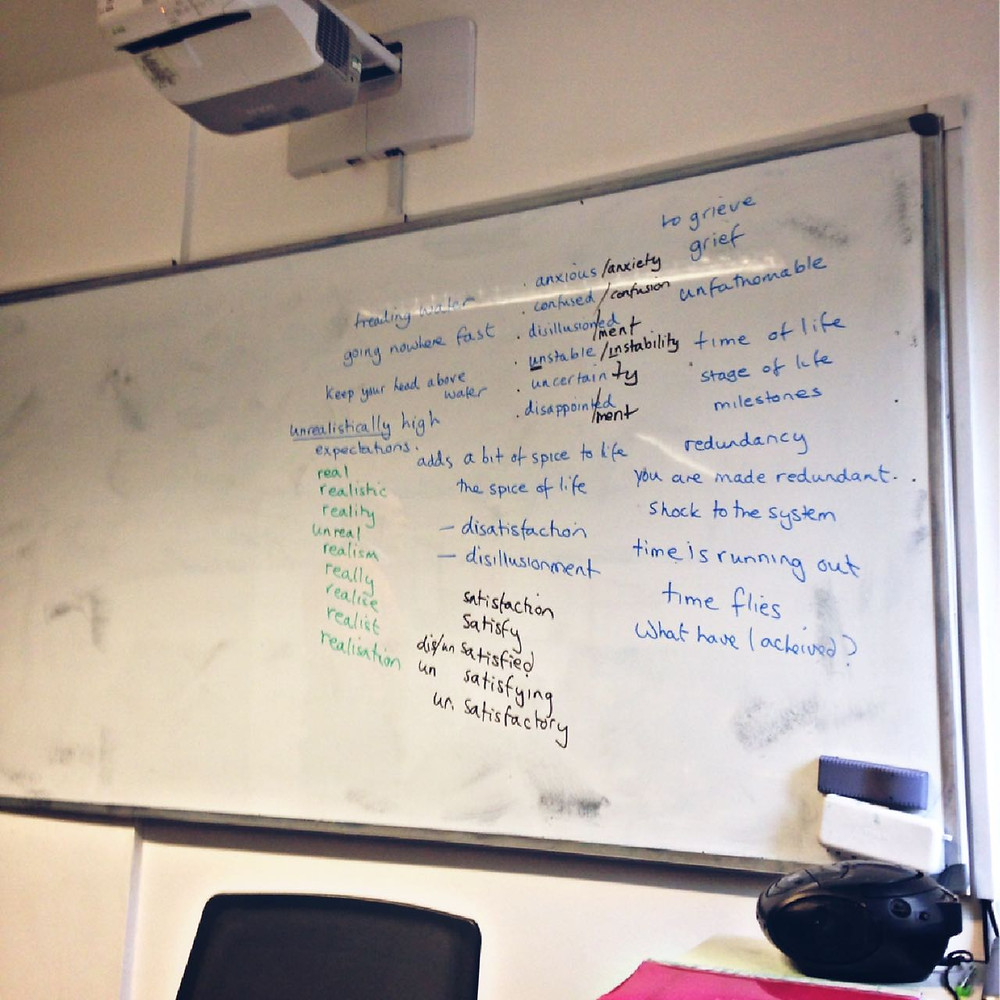 treading water
going nowhere fast
Keep your head above
water
unrealistically high
expectations.
real
realistic
reality
unreal
realism
really
realise
realist
realisation
. anxious/anxiety
. confused/confusion
. disillusioned
/ment
. unstable/instability
. uncertainty
. disappointed
/ment
adds a bit of spice to life
the spice of life
- disatisfaction
- disillusionment
satisfaction
satisfy
dis/un satisfied
un satisfying
un. satisfactory
to grieve
grief
unfathomable
time of life
stage of life
milestones
redundancy
you are made redundant...
shock to the system
time is running out
time flies
What have I acheived?